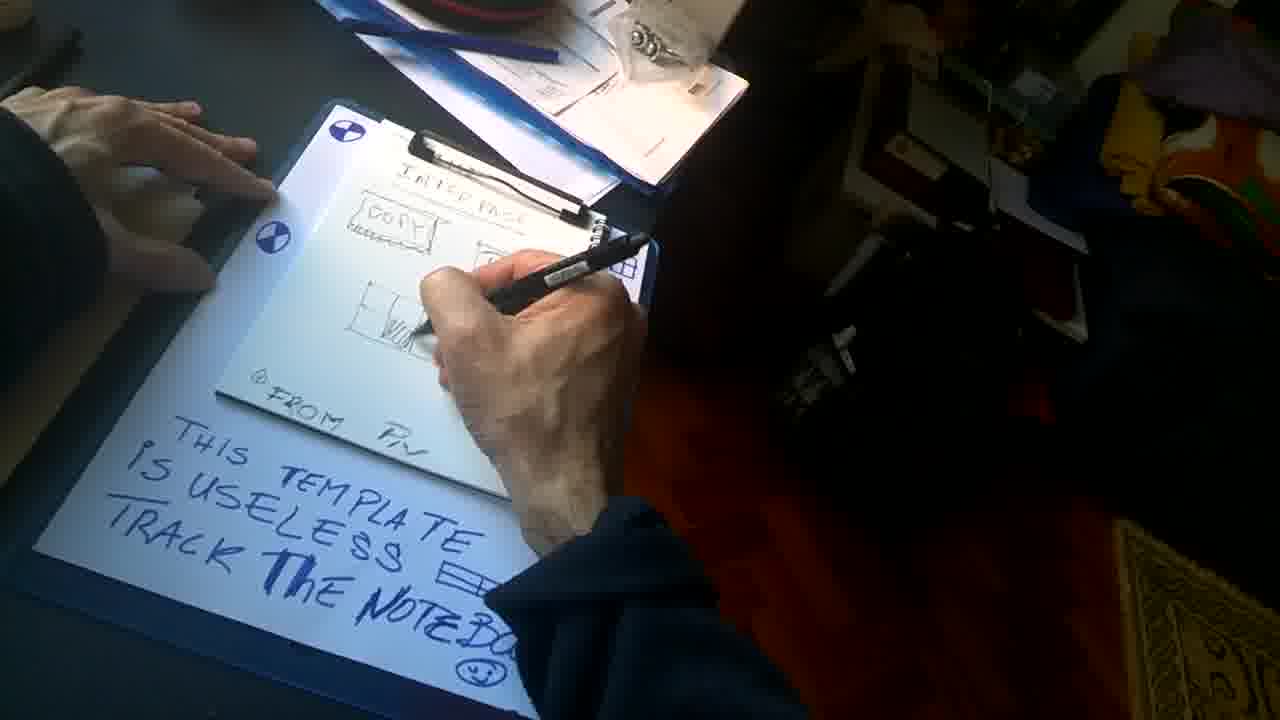 INTERFACE
COPY
FROM
THIS TEMPLATE
iS USELESS
TRACK THE NOTEBO